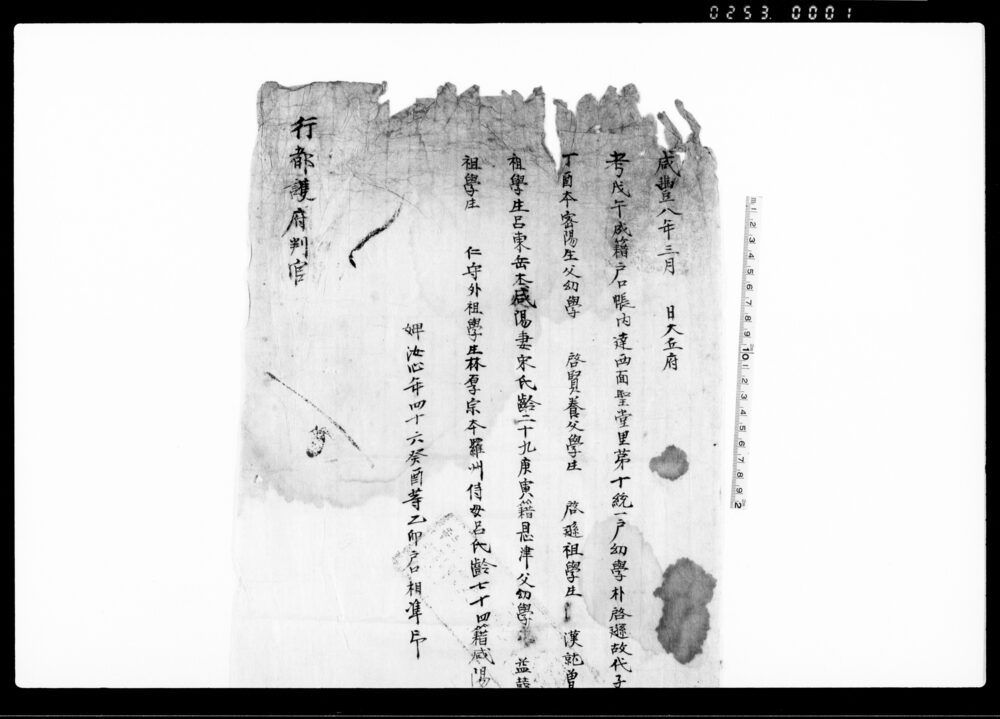 0253.0001
咸豐八年三月 日大丘府
考戊午成籍戶口帳內達西面聖堂里第十統一戶幼學朴啓遜故代子
丁酉本密陽生父幼學 啓賢養父學生 啓遜祖學生 漢就曾
祖學生呂東岳本咸陽妻宋氏齡二十九庚寅籍恩津父幼學 益
祖學生 仁守外祖學生林厚宗本羅州侍母呂氏齡七十四籍咸陽
婢汝心年四十六癸酉等乙卯戶口相準印
行都護府判官
1 2 3 4 5 6 7 8 9 10 1 2 3 4 5 6 7 8 9 2